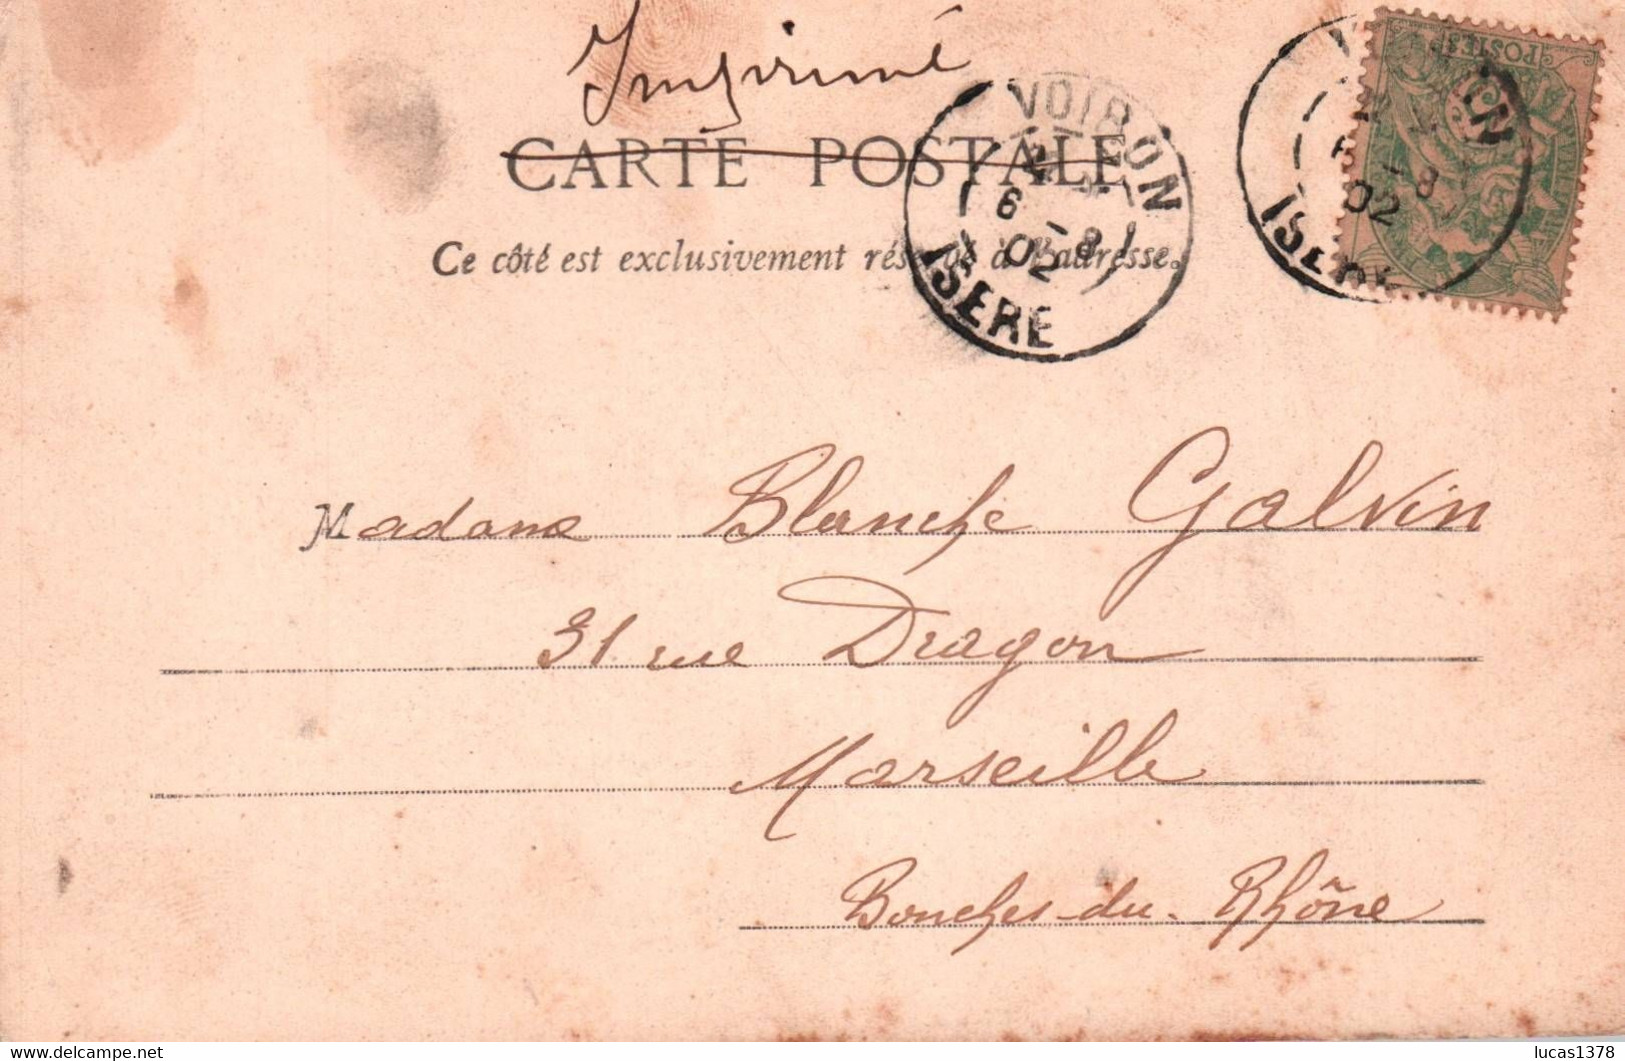 Imprimé
CARTE POSTALE
Ce côté est exclusivement réservé à l'adresse.
VOIRON
6 -8
02
ISERE
POSTES
-8
02
ISERE
Madame Blanche Galvin
31 rue Dragon
Marseille
Bouches-du-Rhône
delcampe.net
lucas1378